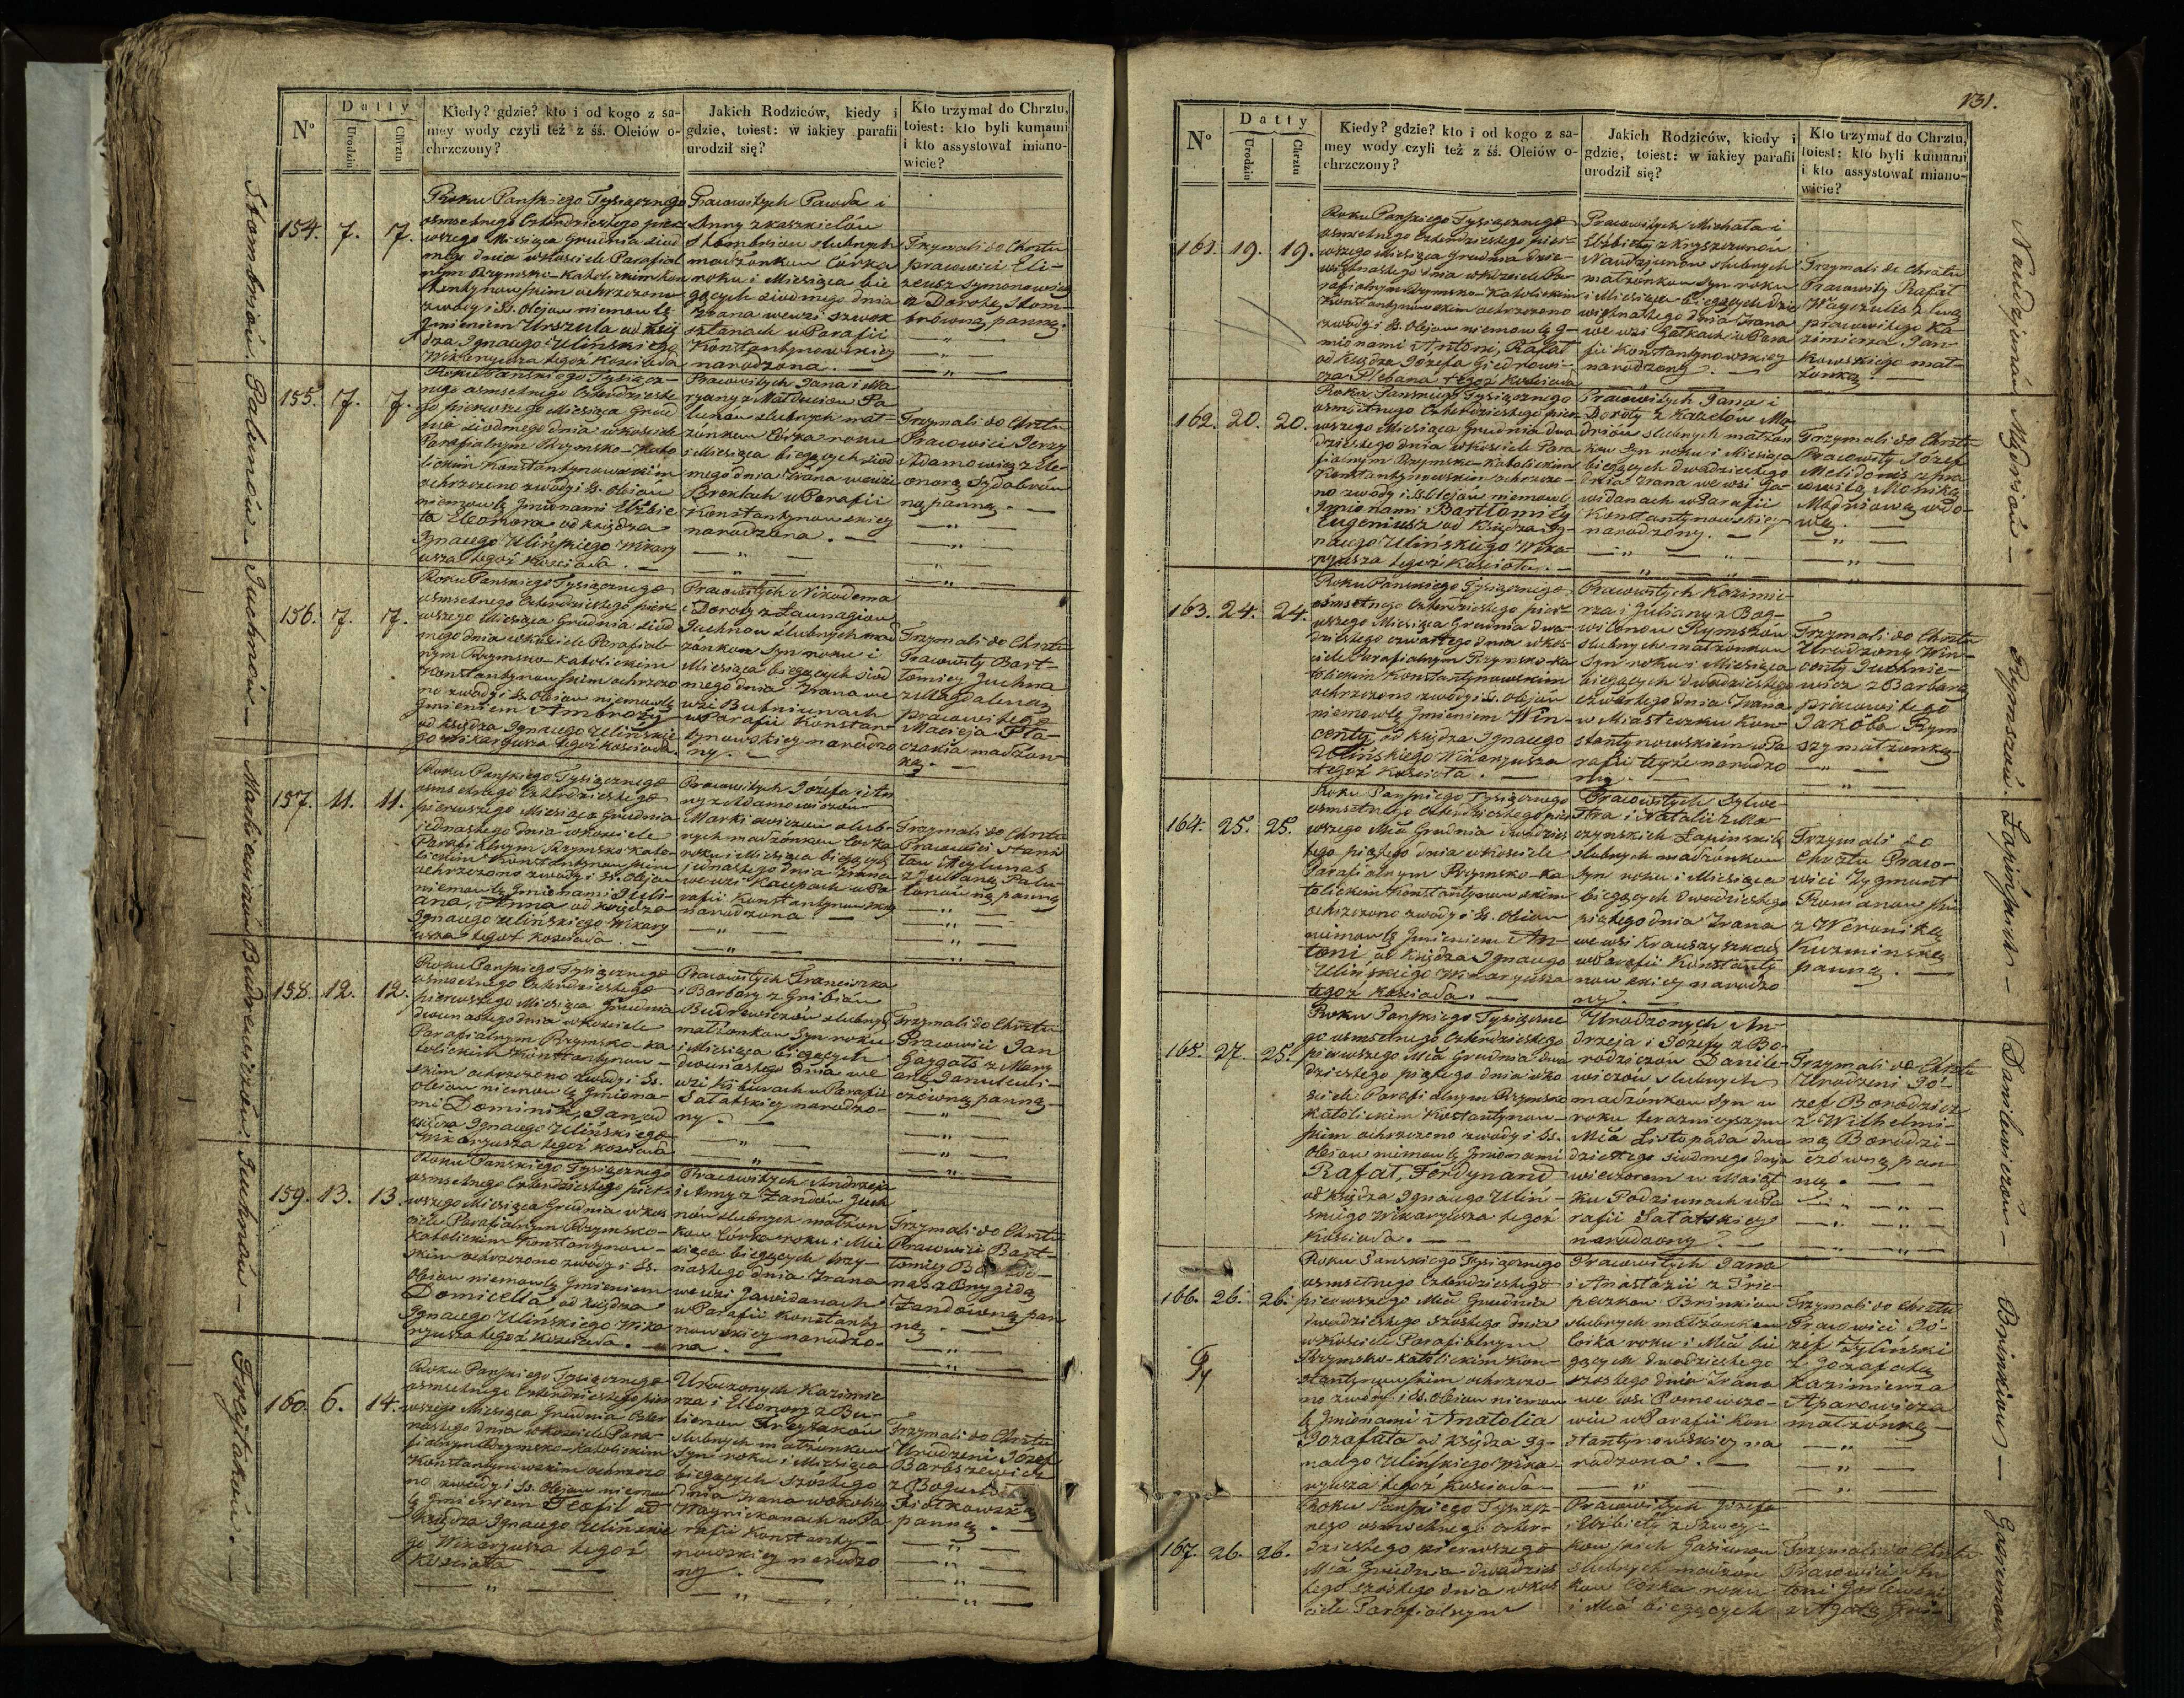 N°
Datty
Urodzin
Chrztu
Kiedy? gdzie? kto i od kogo z sa-
mey wody czyli też z śś. Oleiów o-
chrzczony?
Jakich Rodziców, kiedy i
gdzie, toiest: w iakiey parafii
urodził się?
Kto trzymał do Chrztu,
toiest: kto byli kumami
i kto assystował miano-
wicie?
154. 7. 7.
Roku Pańskiego Tysiącznego
osmsetnego Czterdziestego pier
wszego Miesiąca Grudnia siod
mego dnia w kościele Parafial
nym Rzymsko-Katolickim Kon
stantynowskim ochrzczono
z wody i S. Olejow niemowlę
Imieniem Urszula od Xię
dza Ignacego Ulińskiego
Wikaryusza tegoż Kościoła
Pracowitych Pawła i
Anny z
slubnych
małżonkow Córka
roku i Miesiąca bie
gących siodmego dnia
zrana we wsi
w Parafii
Konstantynowskiey
narodzona. —
Trzymali do Chrztu
pracowici Eli-
zeusz Symonowicz
z Dorotą Stom-
brówną panną.
155. 7. 7.
Roku Pańskiego Tysiącz-
nego osmsetnego Czterdzieste
go pierwszego Miesiąca Gru
dnia siodmego dnia w kościele
Parafialnym Rzymsko-Kato
lickim Konstantynowskim
ochrzczono z wody i S. Olejów
niemowlę Imionami Elżbie
ta Eleonora od Księdza
Ignacego Ulińskiego Wikary
usza tegoż Kościoła. —
Pracowitych Jana i Ma
ryany z
slubnych mał-
żonkow Córka roku
i Miesiąca biegących siod
mego dnia zrana we wsi
w Parafii
Konstantynowskiey
narodzona. —
Trzymali do Chrztu
Pracowici Jerzy
Adamowicz z Ele-
onorą
panną. —
156. 7. 7.
Roku Pańskiego Tysiącznego
osmsetnego Czterdziestego pier
wszego Miesiąca Grudnia siod
mego dnia w kościele Parafial-
nym Rzymsko-Katolickim
Konstantynowskim ochrzczo
no z wody i S. Olejow niemowlę
Imieniem Ambroży
od Księdza Ignacego Ulińskie
go Wikaryusza tegoż Kościoła.
Pracowitych Nikodema
i Doroty z
Juchnow slubnych mał
żonkow Syn roku i
Miesiąca biegących siod
mego dnia zrana we
wsi Butniunach
w Parafii Konstan-
tynowskiey narodzo
ny. —
Trzymali do Chrztu
Pracowity Bart-
łomiey Juchna
z Magdaleną
pracowitego
Macieja
małżon-
ką. —
157. 11. 11.
Roku Pańskiego Tysiącznego
osmsetnego Czterdziestego
pierwszego Miesiąca Grudnia
jednastego dnia w kościele
Parafialnym Rzymsko-Kato-
lickim Konstantynowskim
ochrzczono z wody i S. Olejow
niemowlę Imionami Juli-
ana, Anna od Księdza
Ignacego Ulińskiego Wikary
usza tegoż Kościoła. —
Pracowitych Józefa i An
ny z Adamowiczow
Markiewiczow slub-
nych małżonkow Córka
roku i Miesiąca biegących
jednastego dnia zrana
we wsi Kaupach w Pa
rafii Konstantynowskiey
narodzona. —
Trzymali do Chrztu
Pracowici Stani
sław
z Julianą Palu-
panną
158. 12. 12.
Roku Pańskiego Tysiącznego
osmsetnego Czterdziestego
pierwszego Miesiąca Grudnia
dwunastego dnia w kościele
Parafialnym Rzymsko-Ka
tolickim Konstantynow-
skim ochrzczono z wody i S.
Olejow niemowlę Imiona-
mi Dominik, Jan od
Księdza Ignacego Ulińskiego
Wikaryusza tegoż Kościoła
Pracowitych Franciszka
i Barbary z
Budrewiczów slubnych
małżonkow Syn roku
i Miesiąca biegących
dwunastego dnia we
wsi w Parafii
Sałatskiey narodzo-
ny. —
Trzymali do Chrztu
Pracowici Jan
z Mary
anną
panną
159. 13. 13.
Roku Pańskiego Tysiącznego
osmsetnego Czterdziestego pier
wszego Miesiąca Grudnia w koś
ciele Parafialnym Rzymsko-
Katolickim Konstantynow-
skim ochrzczono z wody i S.
Olejow niemowlę Imieniem
Domicella, od Księdza
Ignacego Ulińskiego Wika
ryusza tegoż Kościoła. —
Pracowitych Andrzeja
i Anny z Żandów Juch
nów slubnych małżon
kow Córka roku i Mie
siąca biegących trzy-
nastego dnia zrana
we wsi Gawidanach
w Parafii Konstanty
nowskiey narodzo-
na. —
Trzymali do Chrztu
Pracowici Bart-
łomiey
z Brygidą
Żandówną pan
ną. —
160. 6. 14.
Roku Pańskiego Tysiącznego
osmsetnego Czterdziestego pier
wszego Miesiąca Grudnia Czter
nastego dnia w kościele Para-
fialnym Rzymsko-Katolickim
Konstantynowskim ochrzczo
no z wody i S. Olejow niemow
lę Imieniem Teofil od
Księdza Ignacego Ulińskie
go Wikaryusza tegoż
Kościoła —
Urodzonych Kazimie
rza i Eleonory z Bu-
Freytaków
slubnych małżonkow
Syn roku i Miesiąca
biegących szóstego
dnia zrana w okolicy
w Pa
rafii Konstanty-
nowskiey narodzo
ny. —
Trzymali do Chrztu
Urodzeni Józef
Bartoszewicz
z
Piotkowską
panną. —
Stombrów. — Palunców — Juchnów — Markiewiczów Budrewiczów — Juchnów — Freytaków. —
131.
N°
Datty
Urodzin
Chrztu
Kiedy? gdzie? kto i od kogo z sa-
mey wody czyli też z śś. Oleiów o-
chrzczony?
Jakich Rodziców, kiedy i
gdzie, toiest: w iakiey parafii
urodził się?
Kto trzymał do Chrztu,
toiest: kto byli kumami
i kto assystował miano-
wicie?
161. 19. 19.
Roku Pańskiego Tysiącznego
osmsetnego Czterdziestego pier-
wszego Miesiąca Grudnia dzie-
więtnastego dnia w kościele Pa-
rafialnym Rzymsko-Katolickim
Konstantynowskim ochrzczono
z wody i S. Olejow niemowlę I-
mionami Antoni, Rafał
od Księdza Józefa Giedrowi-
cza Plebana tegoż Kościoła
Pracowitych Michała i
Elżbiety z
Naudziunow slubnych
małżonkow Syn roku
i Miesiąca biegących dzie
więtnastego dnia zrana
we wsi w Para
fii Konstantynowskiey
narodzony. —
Trzymali do Chrztu
Pracowity Rafał
z Ewą
pracowitego Ka-
zimierza Jan-
kowskiego mał-
żonką. —
162. 20. 20.
Roku Pańskiego Tysiącznego
osmsetnego Czterdziestego pier
wszego Miesiąca Grudnia dwu
dziestego dnia w kościele Para
fialnym Rzymsko-Katolickim
Konstantynowskim ochrzczo-
no z wody i S. Olejów niemowlę
Imionami Bartłomiey
Eugeniusz od Księdza Ig-
nacego Ulińskiego Wika-
ryusza tegoż Kościoła. —
Pracowitych Jana i
Doroty z
slubnych małżon
kow Syn roku i Miesiąca
biegących dwudziestego
dnia zrana we wsi Ga-
widanach w Parafii
Konstantynowskiey
narodzony. —
Trzymali do Chrztu
Pracowity Józef
z pra
cowitą Moniką
wdo-
wą.
163. 24. 24.
Roku Pańskiego Tysiącznego
osmsetnego Czterdziestego pier
wszego Miesiąca Grudnia dwu-
dziestego czwartego dnia w koś
ciele Parafialnym Rzymsko-Ka
tolickim Konstantynowskim
ochrzczono z wody i S. Olejów
niemowlę Imieniem Win-
centy, od Księdza Ignacego
Ulińskiego Wikaryusza
tegoż Kościoła. —
Pracowitych Kazimie-
rza i Julianny z
Rymszów
slubnych małżonkow
Syn roku i Miesiąca
biegących dwudziestego
czwartego dnia zrana
w Miasteczku Kon-
stantynowskiem w Pa
rafii teyże narodzo
ny. —
Trzymali do Chrztu
Urodzony Win-
centy
z Barbarą
pracowitego
Jakóba Rym
szy małżonką
164. 25. 25.
Roku Pańskiego Tysiącznego
osmsetnego Czterdziestego pier
wszego Mca Grudnia dwudzies
tego piątego dnia w kościele
Parafialnym Rzymsko-Ka
tolickim Konstantynowskim
ochrzczono z wody i S. Olejow
niemowlę Imieniem An-
toni, od Księdza Ignacego
Ulińskiego Wikaryusza
tegoż Kościoła. —
Pracowitych Sylwe-
stra i Natalii z Ma-
czynskich Łapinskich
slubnych małżonkow
Syn roku i Miesiąca
biegących dwudziestego
piątego dnia zrana
we wsi
w Parafii Konstanty
nowskiey narodzo
ny. —
Trzymali do
Chrztu Praco-
wici Zygmunt
z Weroniką
Kuzminską
panną. —
165. 27. 25.
Roku Pańskiego Tysiączne
go osmsetnego Czterdziestego
pierwszego Mca Grudnia dwu
dziestego piątego dnia w ko
ściele Parafialnym Rzymsko
Katolickim Kostantynow-
skim ochrzczono z wody i S.
Olejow niemowlę Imionami
Rafał, Ferdynand
od Księdza Ignacego Uliń-
skiego Wikaryusza tegoż
Kościoła. —
Urodzonych An-
drzeja i Józefy z Bo-
rodziczów Danile-
wiczów slubnych
małżonkow Syn w
roku teraznieyszym
Mca Listopada dwu
dziestego siodmego dnia
wieczorem w Maiąt
ku Podziunach w Pa
rafii Sałatskiey
narodzony. —
Trzymali do Chrztu
Urodzeni Jó-
zef Borodzicz
z Wilhelmi-
ną Borodzi-
czówną pan-
ną. —
166. 26. 26.
Roku Pańskiego Tysiącznego
osmsetnego Czterdziestego
pierwszego Mca Grudnia
dwudziestego szóstego dnia
w kościele Parafialnym
Rzymsko-Katolickim Kon-
stantynowskim ochrzczo
no z wody i S. Olejow niemow
lę Imionami Anatolia
Jozafata od Księdza Ig-
nacego Ulińskiego Wika-
ryusza tegoż Kościoła
Pracowitych Jana
i Anastazii z
Brinkiow
slubnych małżonkow
Córka roku i Mca bie
gących dwudziestego
szóstego dnia zrana
we wsi
w Parafii Kon
stantynowskiey na
rodzona. —
Trzymali do Chrztu
Pracowici Jó-
zef Żyliński
z Jozafatą
Kazimierza
małżonką —
167. 26. 26.
Roku Pańskiego Tysiącz
nego osmsetnego Czter-
dziestego pierwszego
Mca Grudnia dwudzies
tego szóstego dnia w koś
ciele Parafialnym
Pracowitych Józefa
i Elżbiety z
slubnych małżon
kow Córka roku
i Mca biegących
Trzymali do Chrztu
Pracowici An
toni
z Agatą
Naudziunów — — Rymszów — Łapińskich — Danilewiczów — Brinkiow —